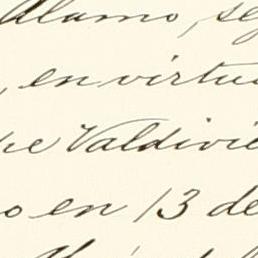 Alamo, se
, en virtu
pe Valdivie
o en 13 de